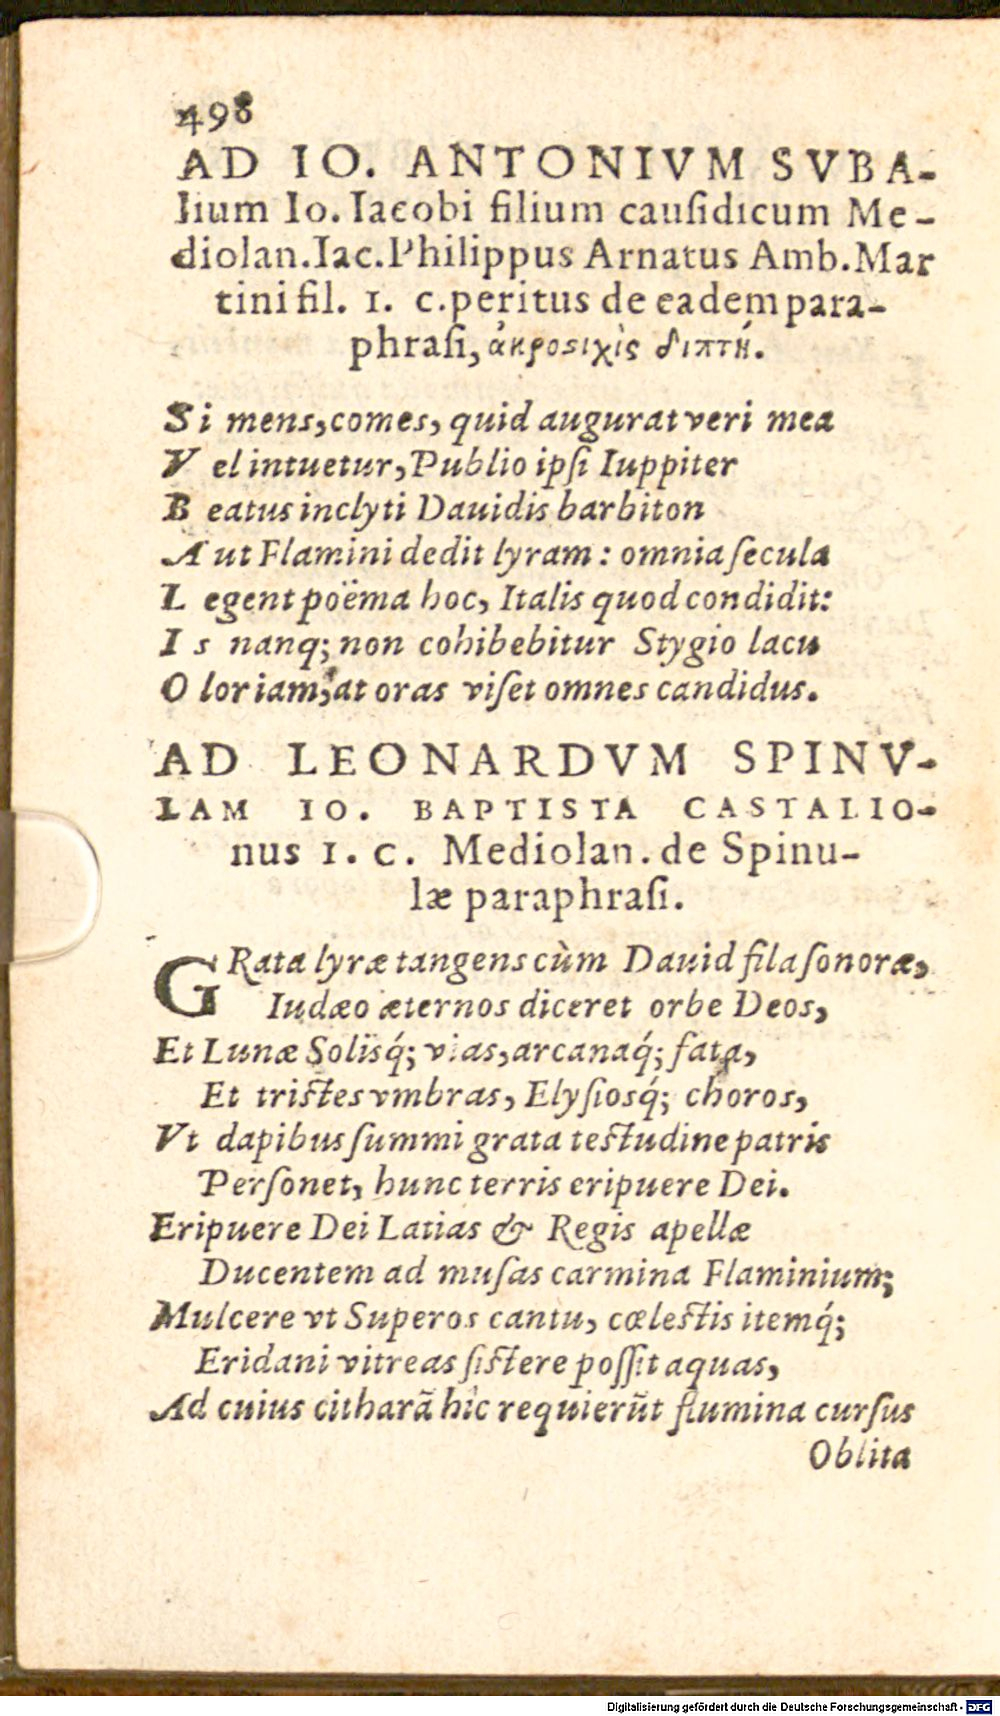 498
AD IO. ANTONIVM SVBA-
lium Io. Iacobi filium cauſidicum Me-
diolan. Iac. Philippus Arnatus Amb. Mar
tini fil. I. C. peritus de eadem para-
phraſi, ἀκροστιχὶς διπτή.
Si mens, comes, quid augurat veri mea
V el intuetur, Publio ipſi Iuppiter
B eatus inclyti Dauidis barbiton
A ut Flamini dedit lyram: omnia ſecula
L egent poëma hoc, Italis quod condidit:
I s nanq; non cohibebitur Stygio lacu
O lor iam, at oras viſet omnes candidus.
AD LEONARDVM SPINV-
LAM IO. BAPTISTA CASTALIO-
nus I. C. Mediolan. de Spinu-
læ paraphraſi.
GRata lyræ tangens cùm Dauid fila ſonoræ,
Iudæo æternos diceret orbe Deos,
Et Lunæ Solisq́; vias, arcanaq́; fata,
Et triſtes vmbras, Elyſiosq́; choros,
Vt dapibus ſummi grata teſtudine patris
Perſonet, hunc terris eripuere Dei.
Eripuere Dei Latias & Regis apellæ
Ducentem ad muſas carmina Flaminium;
Mulcere vt Superos cantu, cœleſtis itemq́;
Eridani vitreas ſiſtere poſſit aquas,
Ad cuius citharã hic requierũt flumina curſus
Oblita
Digitalisierung gefördert durch die Deutsche Forschungsgemeinschaft - DFG